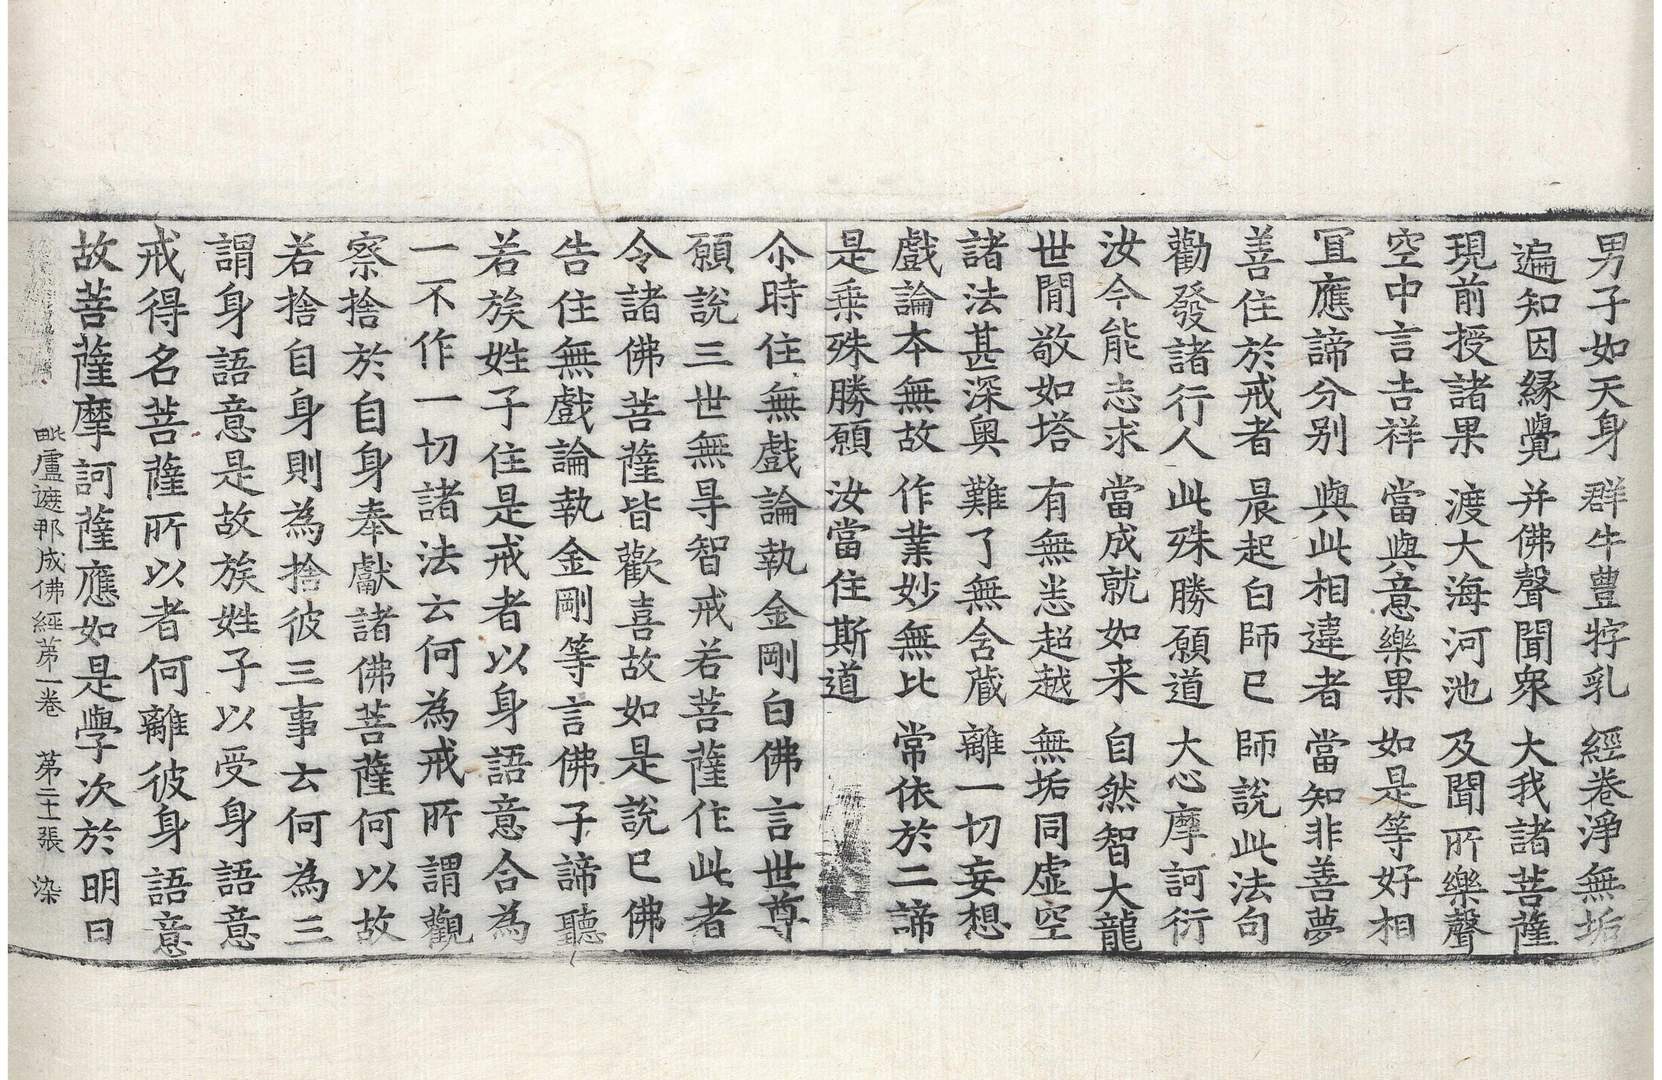 男子如天身 群牛豊牸乳 經卷淨無垢
遍知因縁覺 并佛聲聞衆 大我諸菩薩
現前授諸果 渡大海河池 及聞所樂聲
空中言吉祥 當與意樂果 如是等好相
冝應諦分别 與此相違者 當知非善夢
善住於戒者 晨起白師已 師說此法句
勸發諸行人 此殊勝願道 大心摩訶衍
汝今能志求 當成就如来 自然智大龍
世閒敬如塔 有無悉超越 無垢同虚空
諸法甚深奥 難了無含藏 離一切妄想
戲論本無故 作業妙無比 常依於二諦
是乗殊勝願 汝當住斯道
尒時住無戲論執金剛白佛言世尊
願說三世無㝵智戒若菩薩住此者
令諸佛菩薩皆歡喜故如是說已佛
告住無戲論執金剛等言佛子諦聽
若族姓子住是戒者以身語意合為
一不作一切諸法云何為戒所謂觀
察捨於自身奉獻諸佛菩薩何以故
若捨自身則為捨彼三事云何為三
謂身語意是故族姓子以受身語意
戒得名菩薩所以者何離彼身語意
故菩薩摩訶薩應如是學次於明日
毗盧遮那成佛經苐一卷 苐二十張 染